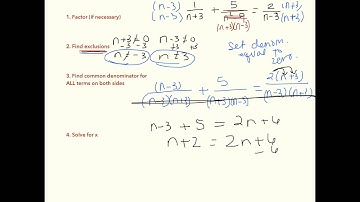 1. Factor (if necessary)
(n-3) 1/(n+3) + 5/(n²-9) = 2/(n-3) (n+3)
(n-3) (n+3)
(n+3)(n-3)
2. Find exclusions
n+3≠0 n-3≠0
-3 -3 +3 +3
n≠-3 n≠3
Set denom. equal to zero.
3. Find common denominator for
ALL terms on both sides
(n-3)/((n-3)(n+3)) + 5/((n+3)(n-3)) = 2(n+3)/((n-3)(n+3))
n-3+5 = 2n+6
4. Solve for x
n+2 = 2n+6
-6